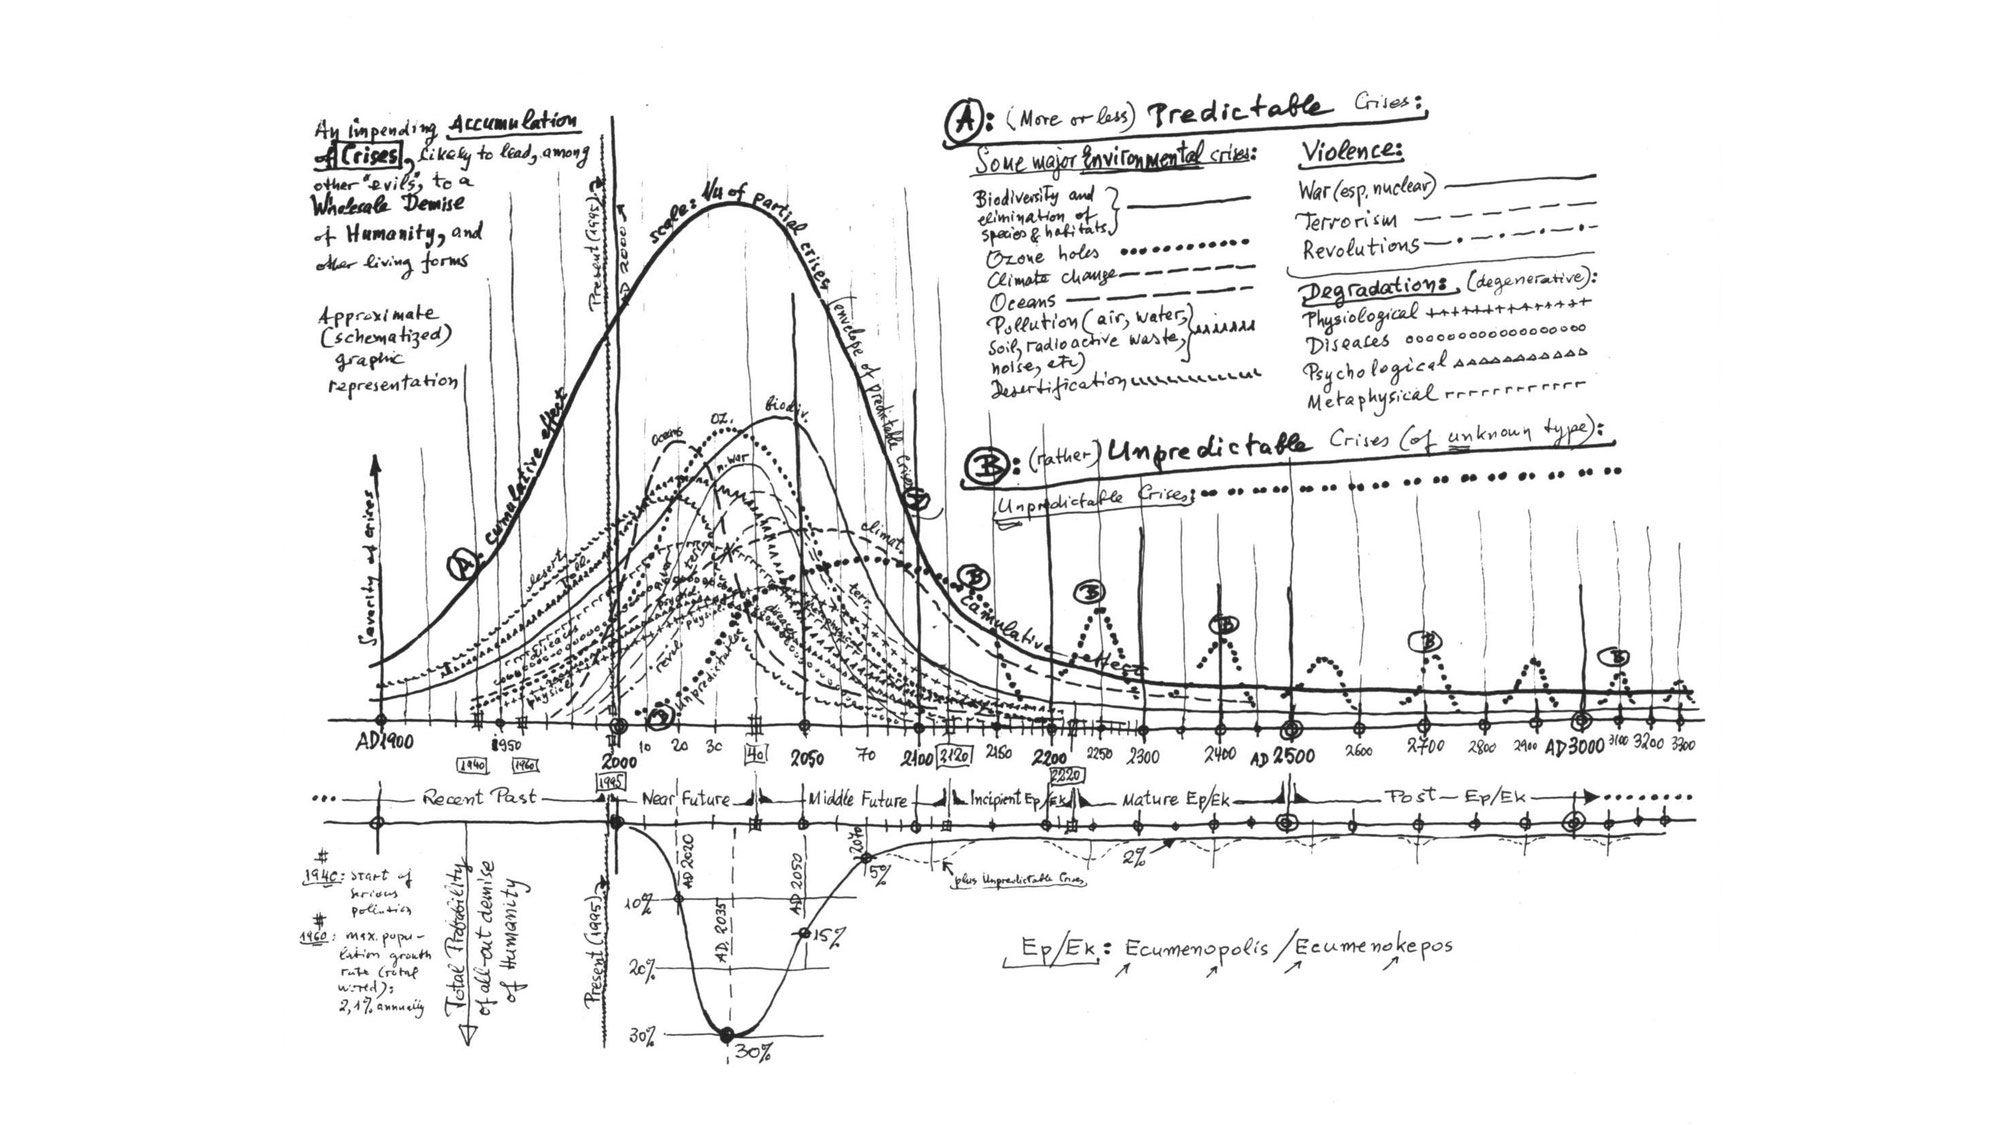 An impending Accumulation
of Crises, likely to lead, among
other "evils", to a
Wholesale Demise
of Humanity, and
other living forms
Approximate
(schematized)
graphic
representation
Present (1995)
AD 2000
scale: 1/4 of partial crises
(envelope of predictable crises)
A: cumulative effect
Severity of crises
A: (More or less) Predictable Crises:
Some major Environmental crises:
Biodiversity and
elimination of
species & habitats
Ozone holes
Climate change
Oceans
Pollution (air, water,
soil, radioactive waste,
noise, etc)
Desertification
Violence:
War (esp. nuclear)
Terrorism
Revolutions
Degradation: (degenerative):
Physiological
Diseases
Psychological
Metaphysical
B: (rather) Unpredictable Crises (of unknown type):
Unpredictable Crises:
Oceans
OZ.
Biodiv.
n. war
climat.
desert.
poll.
diseases
physiol.
terr.
revol.
B unpredictable
diseases
terr.
A
B
cumulative effect
B
B
B
B
AD 1900
1940
1950
1960
1995
2000
10
20
30
40
2050
70
2100
2120
2150
2200
2220
2250
2300
2400
AD 2500
2600
2700
2800
2900
AD 3000
3100
3200
3300
Recent Past
Near Future
Middle Future
Incipient Ep/Ek
Mature Ep/Ek
Post-Ep/Ek
#
1940: start of
serious
pollution
#
1960: max. popu-
lation growth
rate (total
world):
2,1% annually
Total Probability
of all-out demise
of Humanity
Present (1995)
AD 2020
AD 2035
AD 2050
2070
10%
20%
30%
30%
15%
5%
2%
plus Unpredictable Crises
Ep/Ek: Ecumenopolis / Ecumenokepos